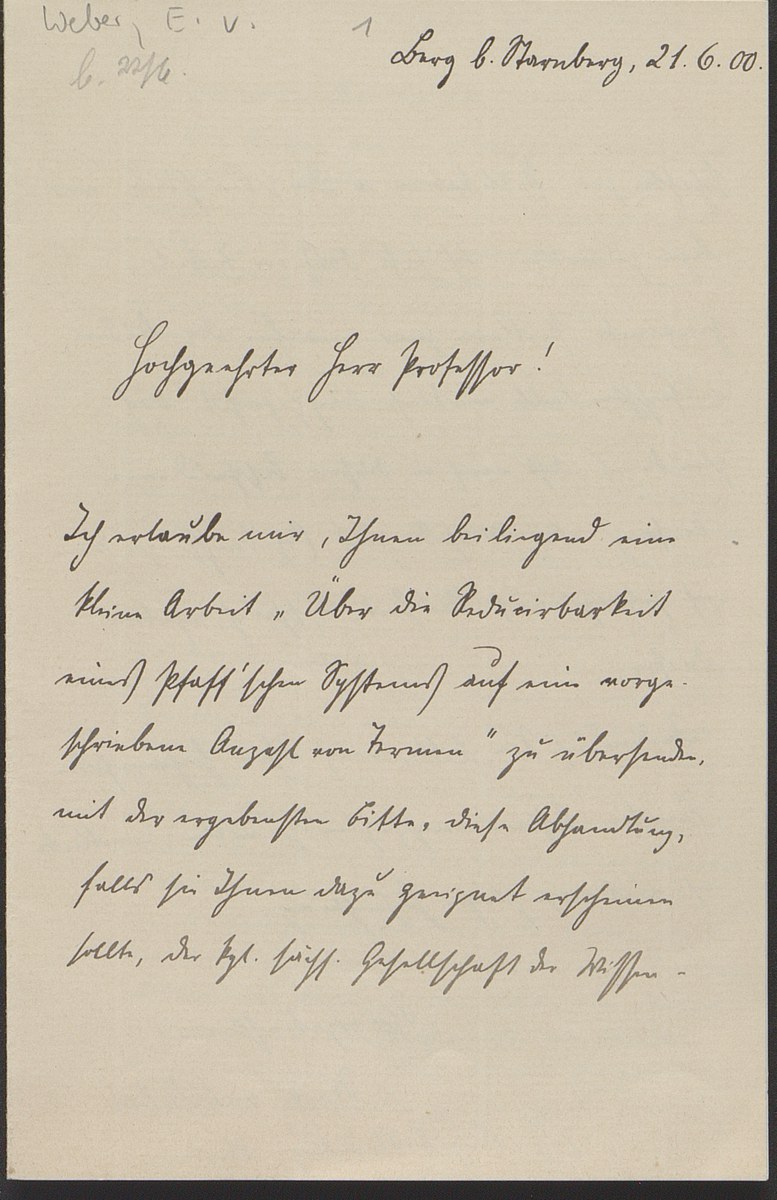 Weber, E. v. 1
b. 22/6.
Berg b. Starnberg, 21. 6. 00.
Hochgeehrter Herr Professor!
Ich erlaube mir, Ihnen beiliegend eine
kleine Arbeit „Über die Reducirbarkeit
eines Pfaff'schen Systems auf eine vorge-
schriebene Anzahl von Termen" zu übersenden,
mit der ergebensten Bitte, diese Abhandlung,
falls sie Ihnen dazu geeignet erscheinen
sollte, der kgl. sächs. Gesellschaft der Wissen-